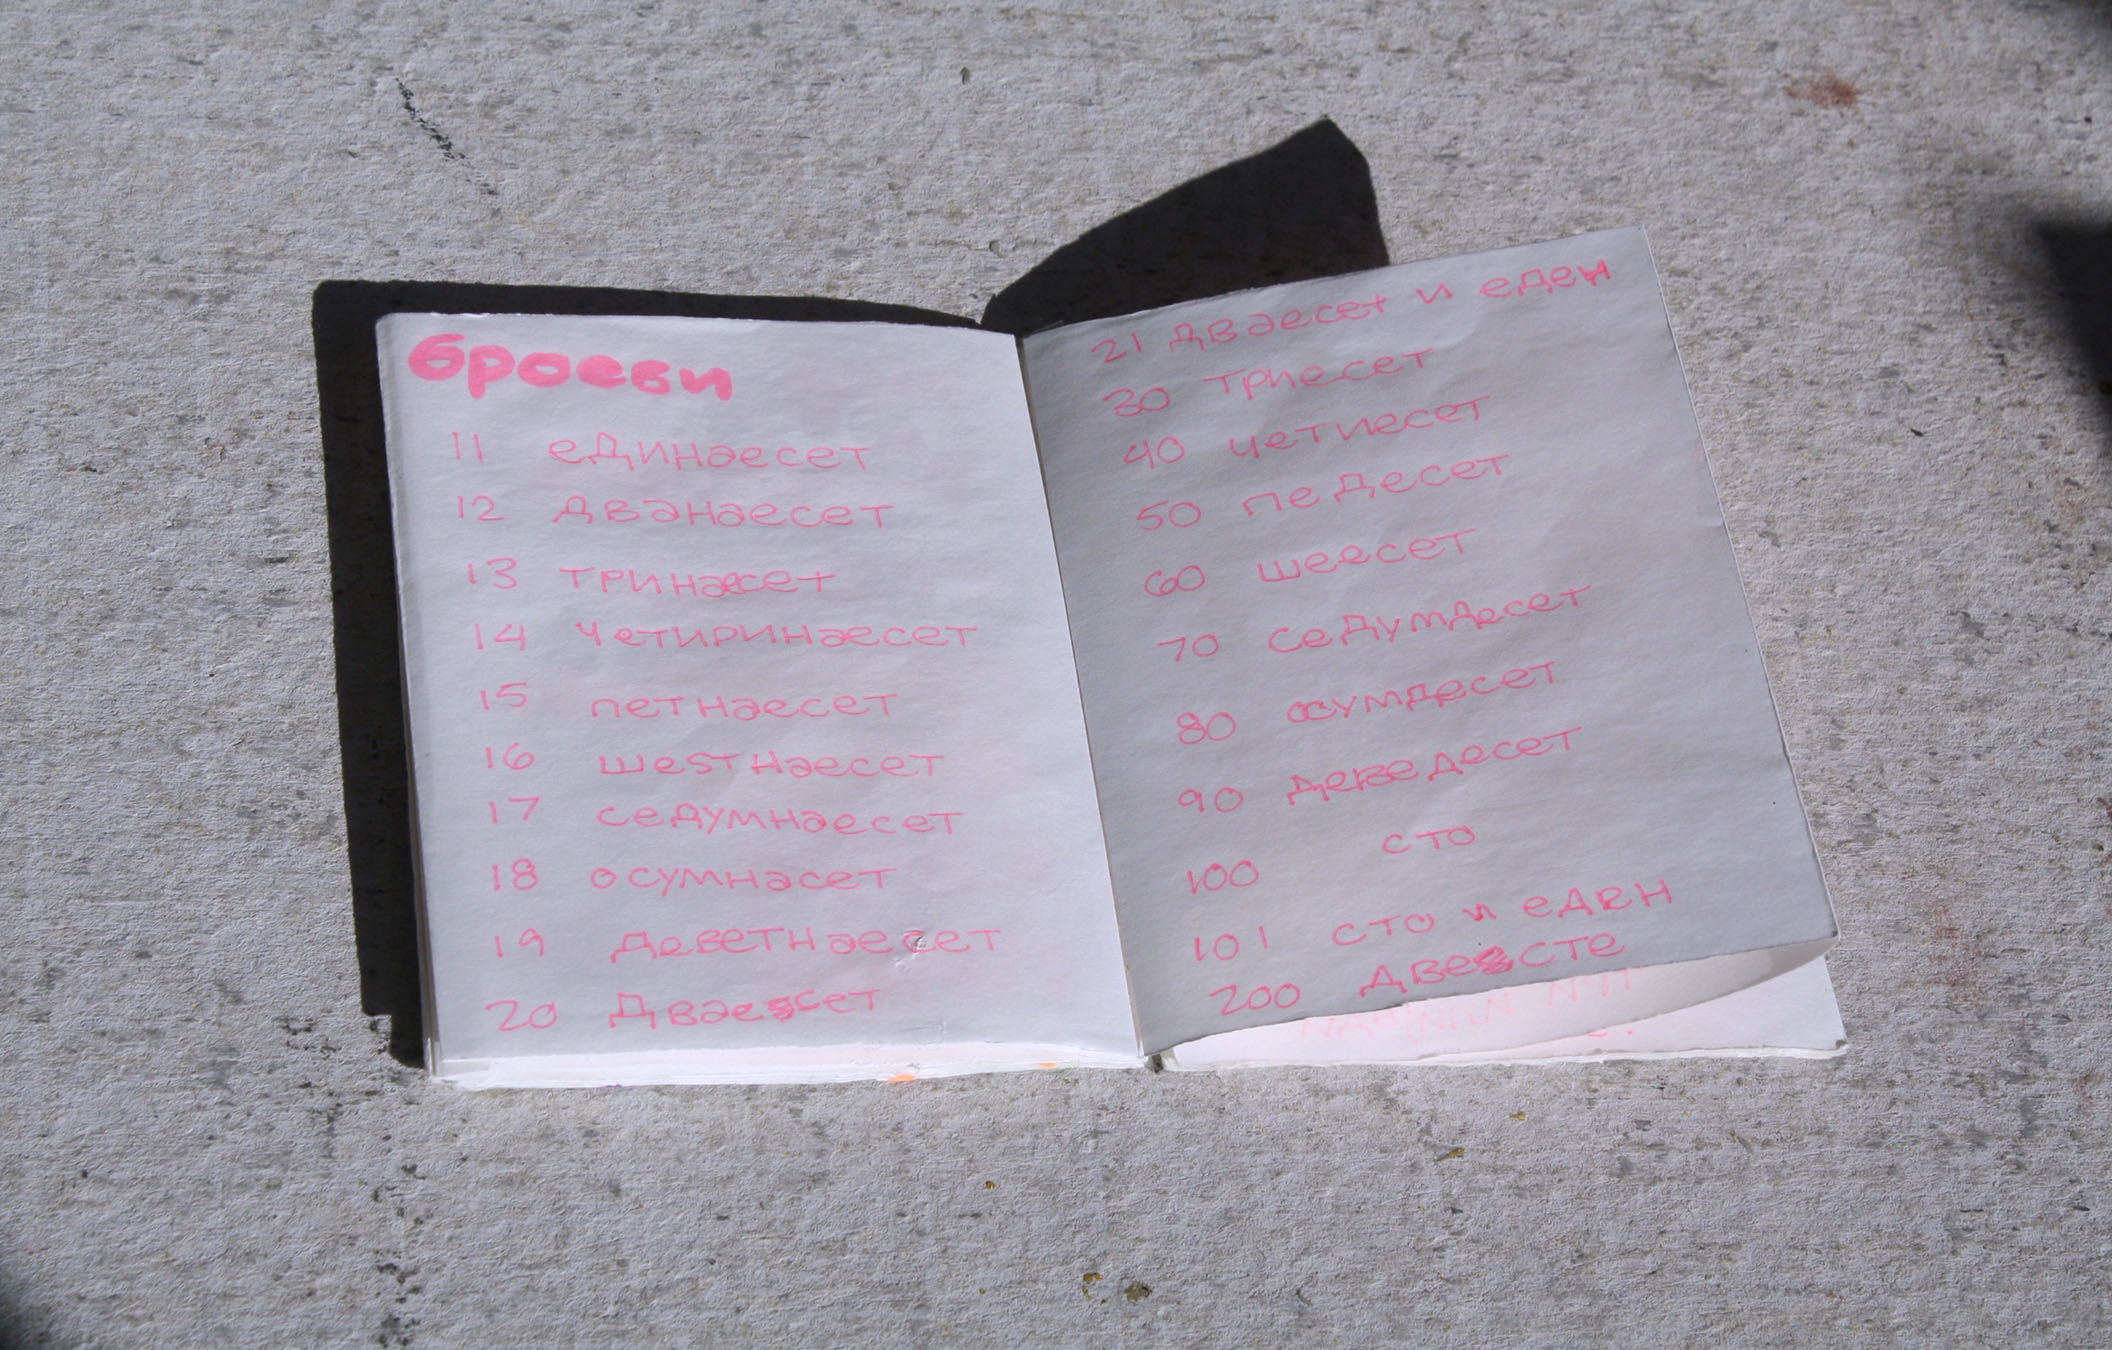 броеви
11 единаесет
12 дванаесет
13 тринаесет
14 четиринаесет
15 петнаесет
16 шеsтнаесет
17 седумнаесет
18 осумнасет
19 деветнаесет
20 Дваесет
21 дваесет и еден
30 триесет
40 четиесет
50 педесет
60 шеесет
70 седумдесет
80 осумдесет
90 деведесет
100 сто
101 сто и еден
200 двесте